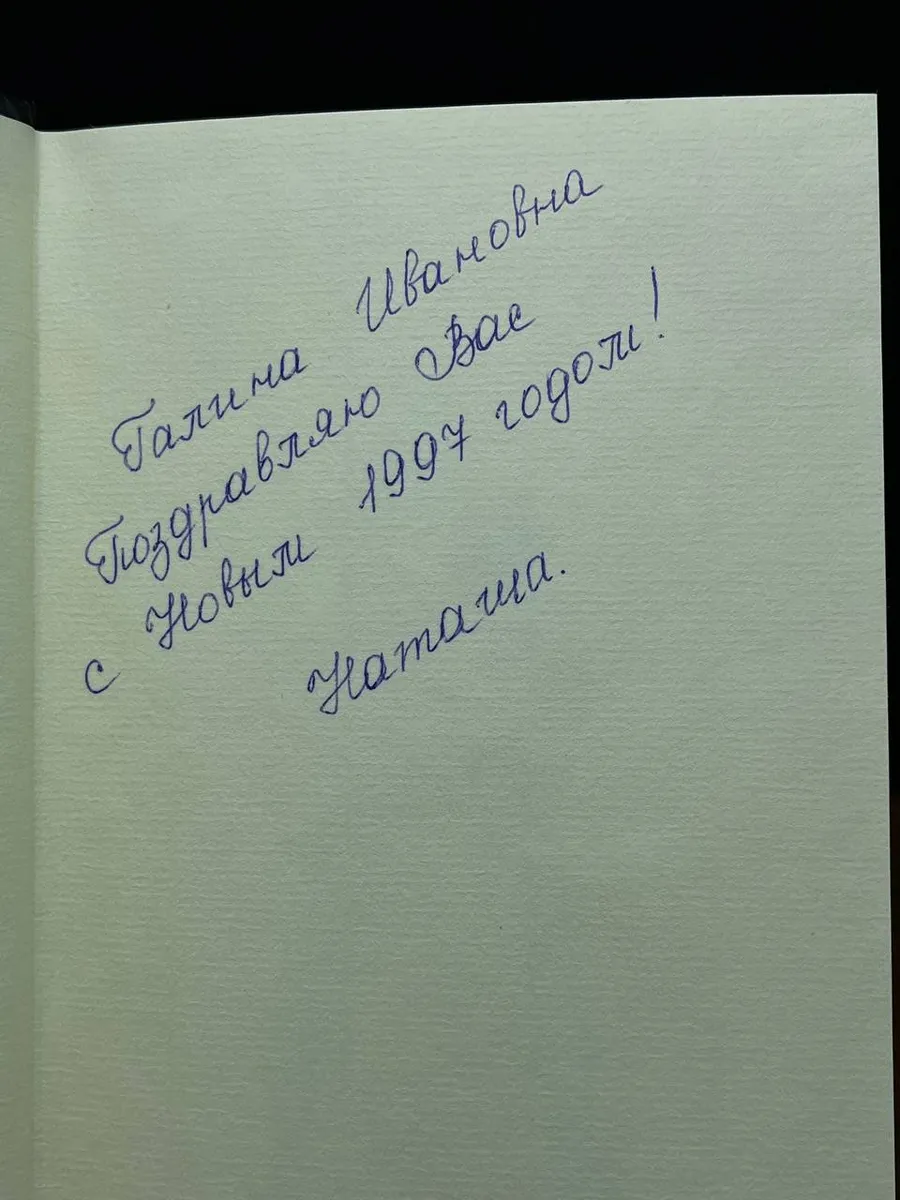 Галина Ивановна
Поздравляю Вас
с Новым 1997 годом!
Наташа.